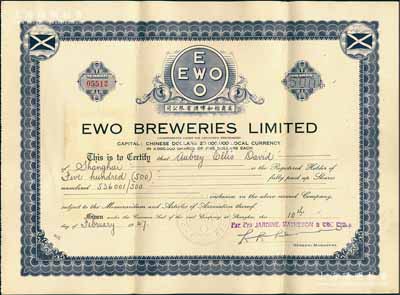 05512
E
EWO
O
EWO BREWERIES LIMITED
CAPITAL: CHINESE DOLLARS 20,000,000 LOCAL CURRENCY
IN 4,000,000 SHARES OF FIVE DOLLARS EACH
This is to Certify that Aubrey Ellis David
of Shanghai is the Registered Holder of
Five hundred (500) fully paid up Shares
numbered 536001/500 inclusive in the above named Company,
subject to the Memorandum and Articles of Association thereof.
Given under the Common Seal of the said Company at Shanghai, the 18th
day of February 1947.
For Pro JARDINE, MATHESON & CO., LTD.
GENERAL MANAGERS